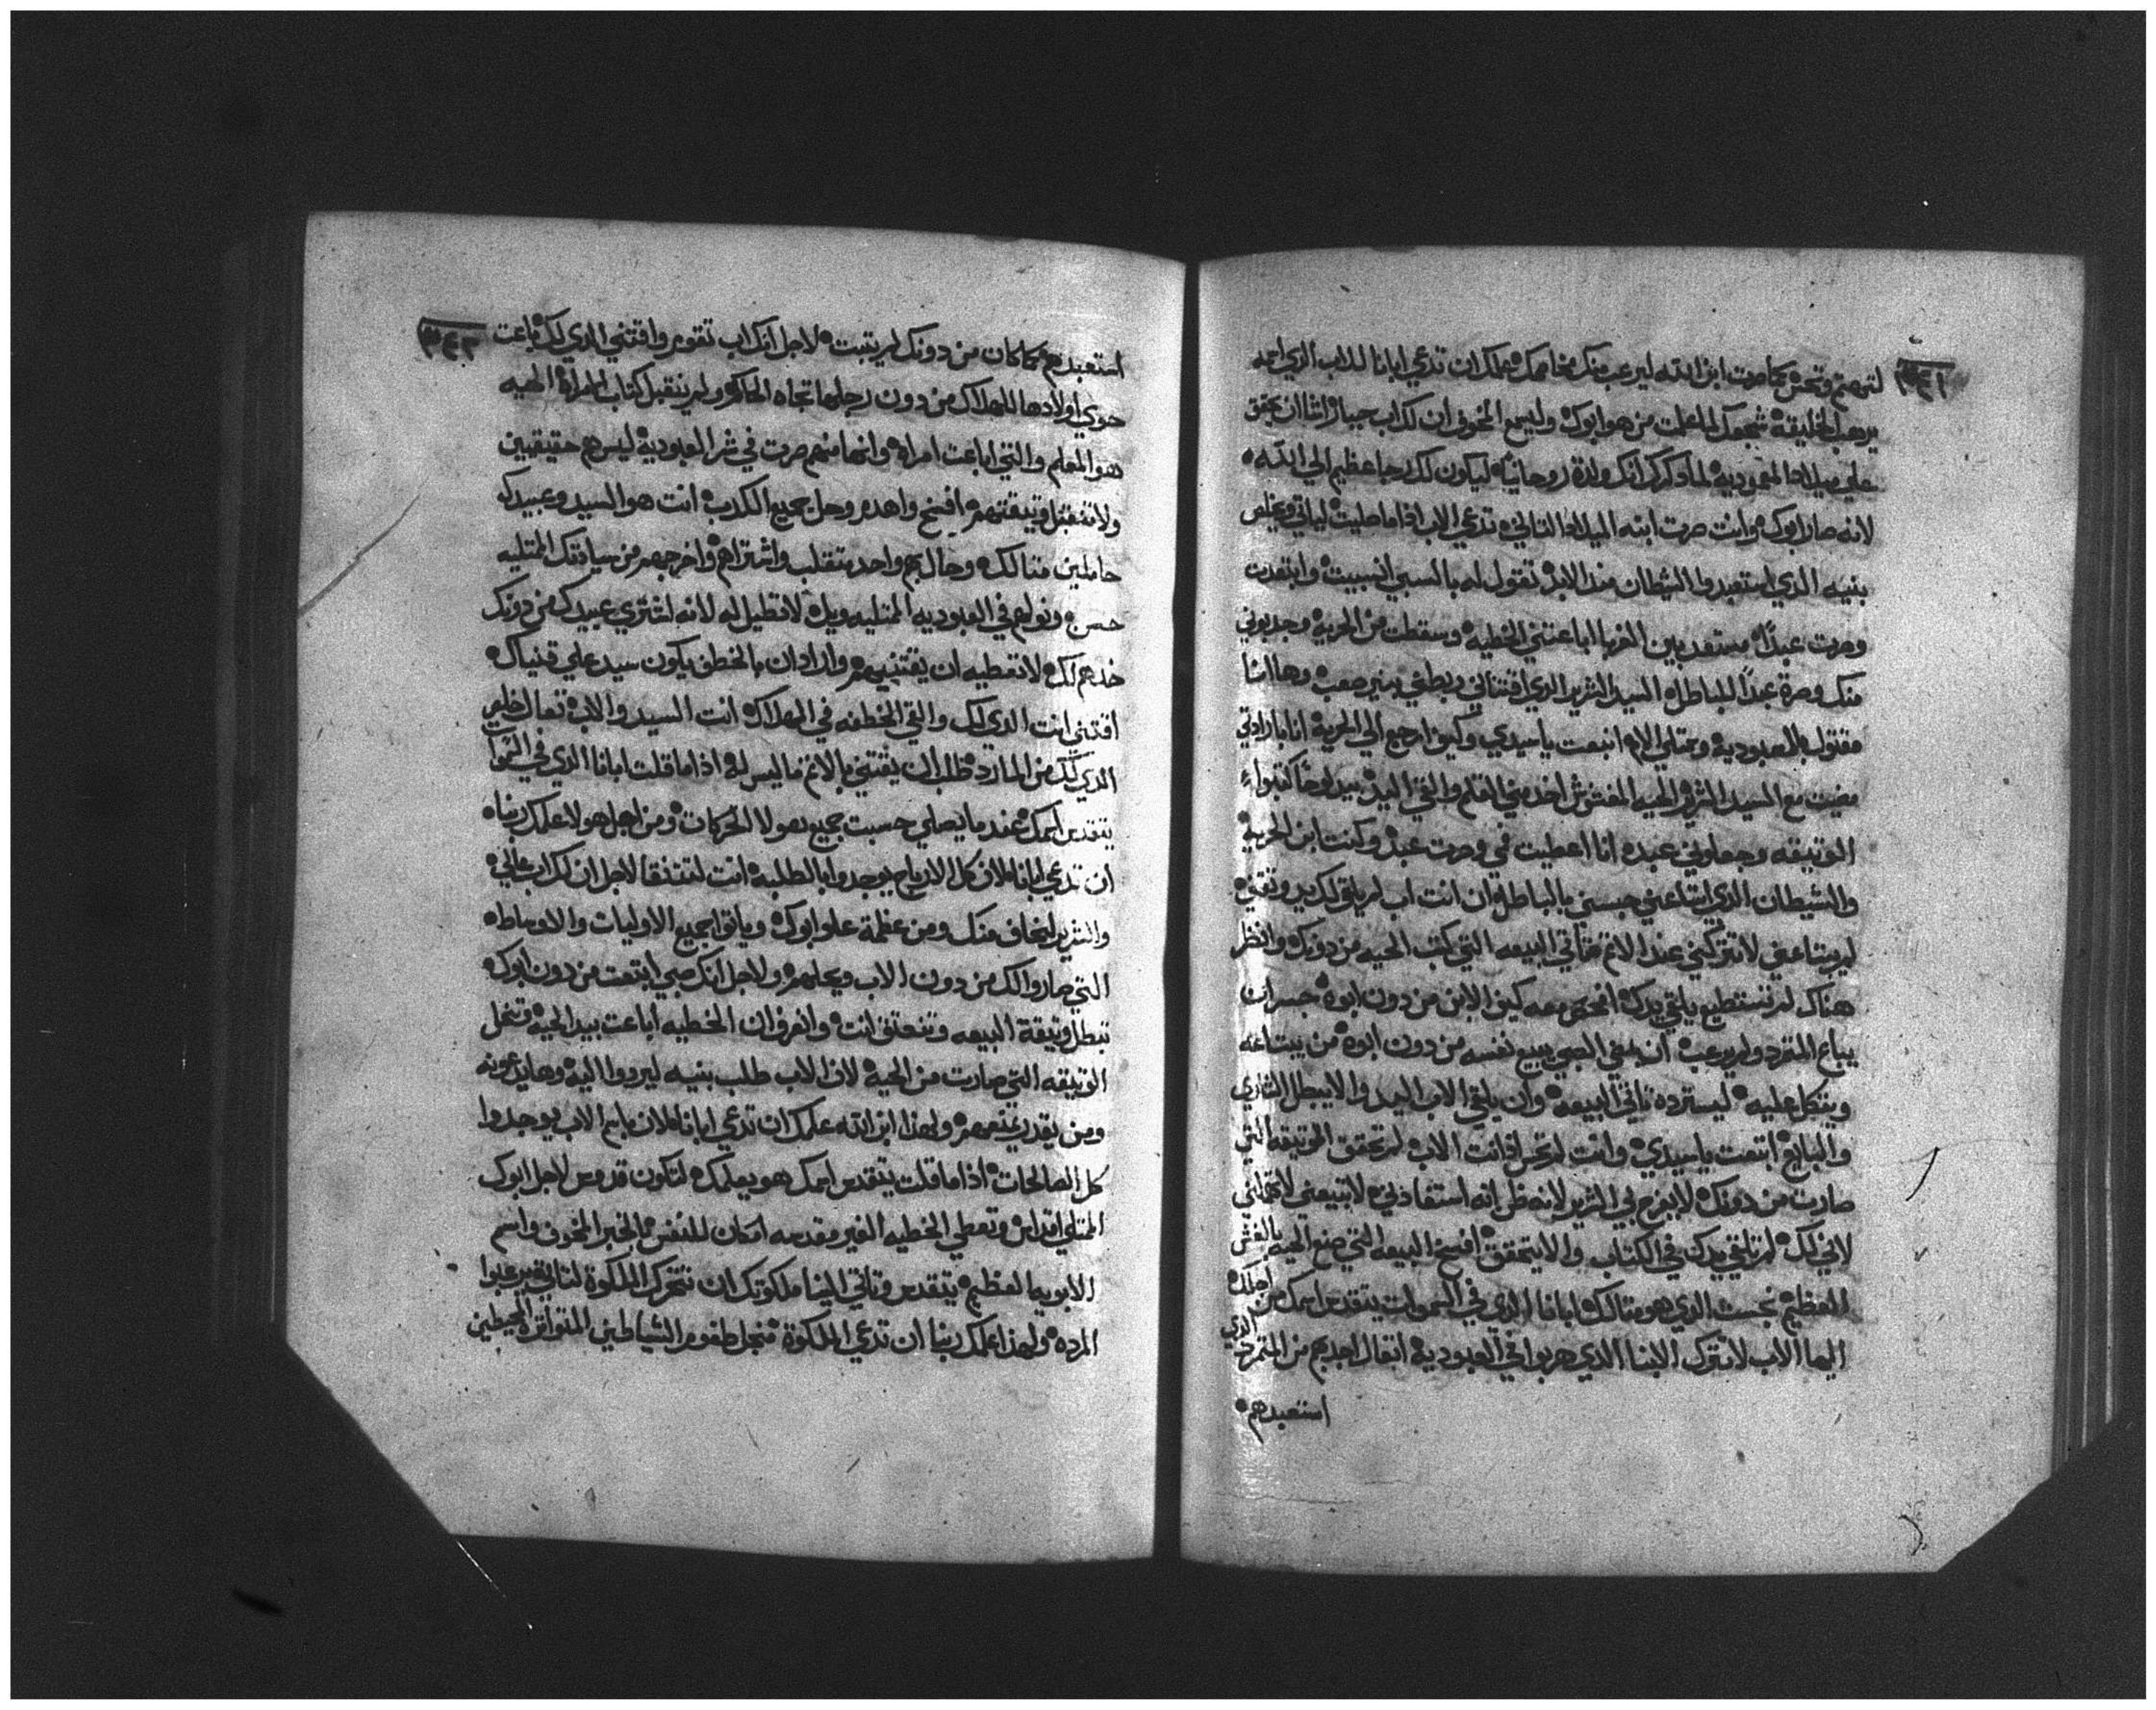 لتهتم وتحس كما صرت ابن الله ليرعب منك مخاصمك علمك ان تدعي ابانا للاب الذي اسمه
يرهب الخليقة شجعك المعلم من هو ابوك وليسمع المخوف ان لك اب جبار
علي ميلاد المعمودية لما انك ولدة روحانياً ليكون لك رجا عظيم الي الله
لانه صار ابوك وانت صرت ابنه الميلاد التاني تدعي الاب اذا ما صليت لياتي ويخلص
بنيه الذي استعبدوا الشطان مند الابد تقول له بالسبي انسبيت وابتعدت
وصرت عبداً مستعبد بين الغربا اباعتني الخطيه وسقطت من الحرية وجدبوني
منك وصرة عبداً للباطل السيد الشرير الذي اقتناني ربطني بنير صعب وها انا
مقتول بالعبودية انبعت ياسيدي وكيف ارجع الي الحرية انا بارادتي
مضيت مع السيد الشرير الحيه اخد مني القلم والقي اليد بيد لوحا كتبوا
الوتيقه وجعلوني عبده انا اعطيت في وصرت عبد وكنت ابن الحرية
والشيطان الذي ابتاعني حبسني بالباطل ان انت اب لم يلقي لك يد وتقتني
لم يبتاعني لا تتركني عند الاتم البيعه التي كتب الحيه من دونك وانظر
هناك لم تستطيع يلقي يدك افحص معه كيف الابن من دون ابوه جسر ان
يباع المتمرد ولم يرعب ان بقي الصبي يبيع نفسه من دون ابوه من يبتاعه
ويتكل عليه ليسترده تاني البيعه وان يلقي الاب اليد والا يبطل الشاري
والبايع ابتعت ياسيدي وانت لم تحس اذانت الاب لم تحقق الوتيقه التي
صارت من دونك لا يفرح بي الشرير لانه ظن انه استفادني لا تبيعني لا تهملني
لاني لك لم تلقي يدك في الكتاب والا يتحقق افسخ البيعه التي صنع الحيه بالغش
العظيم نجست الذي هو متالك ابانا الذي في السموات يتقدس اسمك من اجلك
ايها الاب لا تترك الابنا الذي هربوا في العبودية اتعال اجدبهم من المتمرد الذي
استعبدهم
استعبدهم كما كان من دونك لم يتبت لاجل انك اب تقوم واقتني الذي لك باعت
حوي اولادها للهلاك من دون رجلها تجاه الحاكم ولم يتقبل كتاب المراة الحيه
هو المعلم والتي اباعت امراه وانها منهم صرت في شر العبودية ليس هم حقيقيين
ولا تتقبل وتيقتهم افسخ واهدم وحل جميع الكدب انت هو السيد وعبيدك
حاملين متالك وحالهم واحد متقلب واشتراهم واخرجهم من سيادتك المتليه
حسن وتولهم في العبوديه المتليه ويل لا تطيل له لانه اشتري عبيدك من دونك
خدهم لك لا تعطيه ان يقتنيهم وارادان بالخطف يكون سيد علي قنياك
اقتني انت الذي لك والتي الخطفه في الهلاك انت السيد والاب تعال خلص
الذي لك من المارد طلب ان يقتني بالاتم ما ليس له اذا ما قلت ابانا الذي في السموا
يتقدس اسمك عند ما يصلي حسبت جميع هولا الحركات ومن اجل هولا علمك ربنا
ان تدعي ابانا لان كل الارباح يوجدوا بالطلبه انت لاجل ان لك اب عالي
والشرير ليخاف منك ومن عظمة علو ابوك وياتوا جميع الاوليات والاوساط
التي صاروا لك من دون الاب ويحلهم ولاجل انك صبي ابتعت من دون ابوك
تبطل وتيقة البيعه وتنعتق انت واعرف ان الخطيه اباعت بيد الحيه وتنحل
الوتيقه التي صارت من الحيه لان الاب طلب بنيه ليردوا اليه وها يدعونه
ومن يقدر يمنعهم ولهذا ابن الله علمك ان تدعي ابانا لان باسم الاب يوجدوا
كل الصالحات اذا ما قلت يتقدس اسمك هو يعلمك لتكون قدوس لاجل ابوك
المتلي اقداس وتعطي الخطيه الغير مقدسه امكان للنفس بالخبر المخوف واسم
الابويه العظيم يتقدس وتاتي الينا ملكوتك ان تتحرك الملكوة لتاتي يرعبوا
المرده ولهذا علمك ربنا ان تدعي الملكوة من اجل طغوم الشياطين المتواتره المحيطين